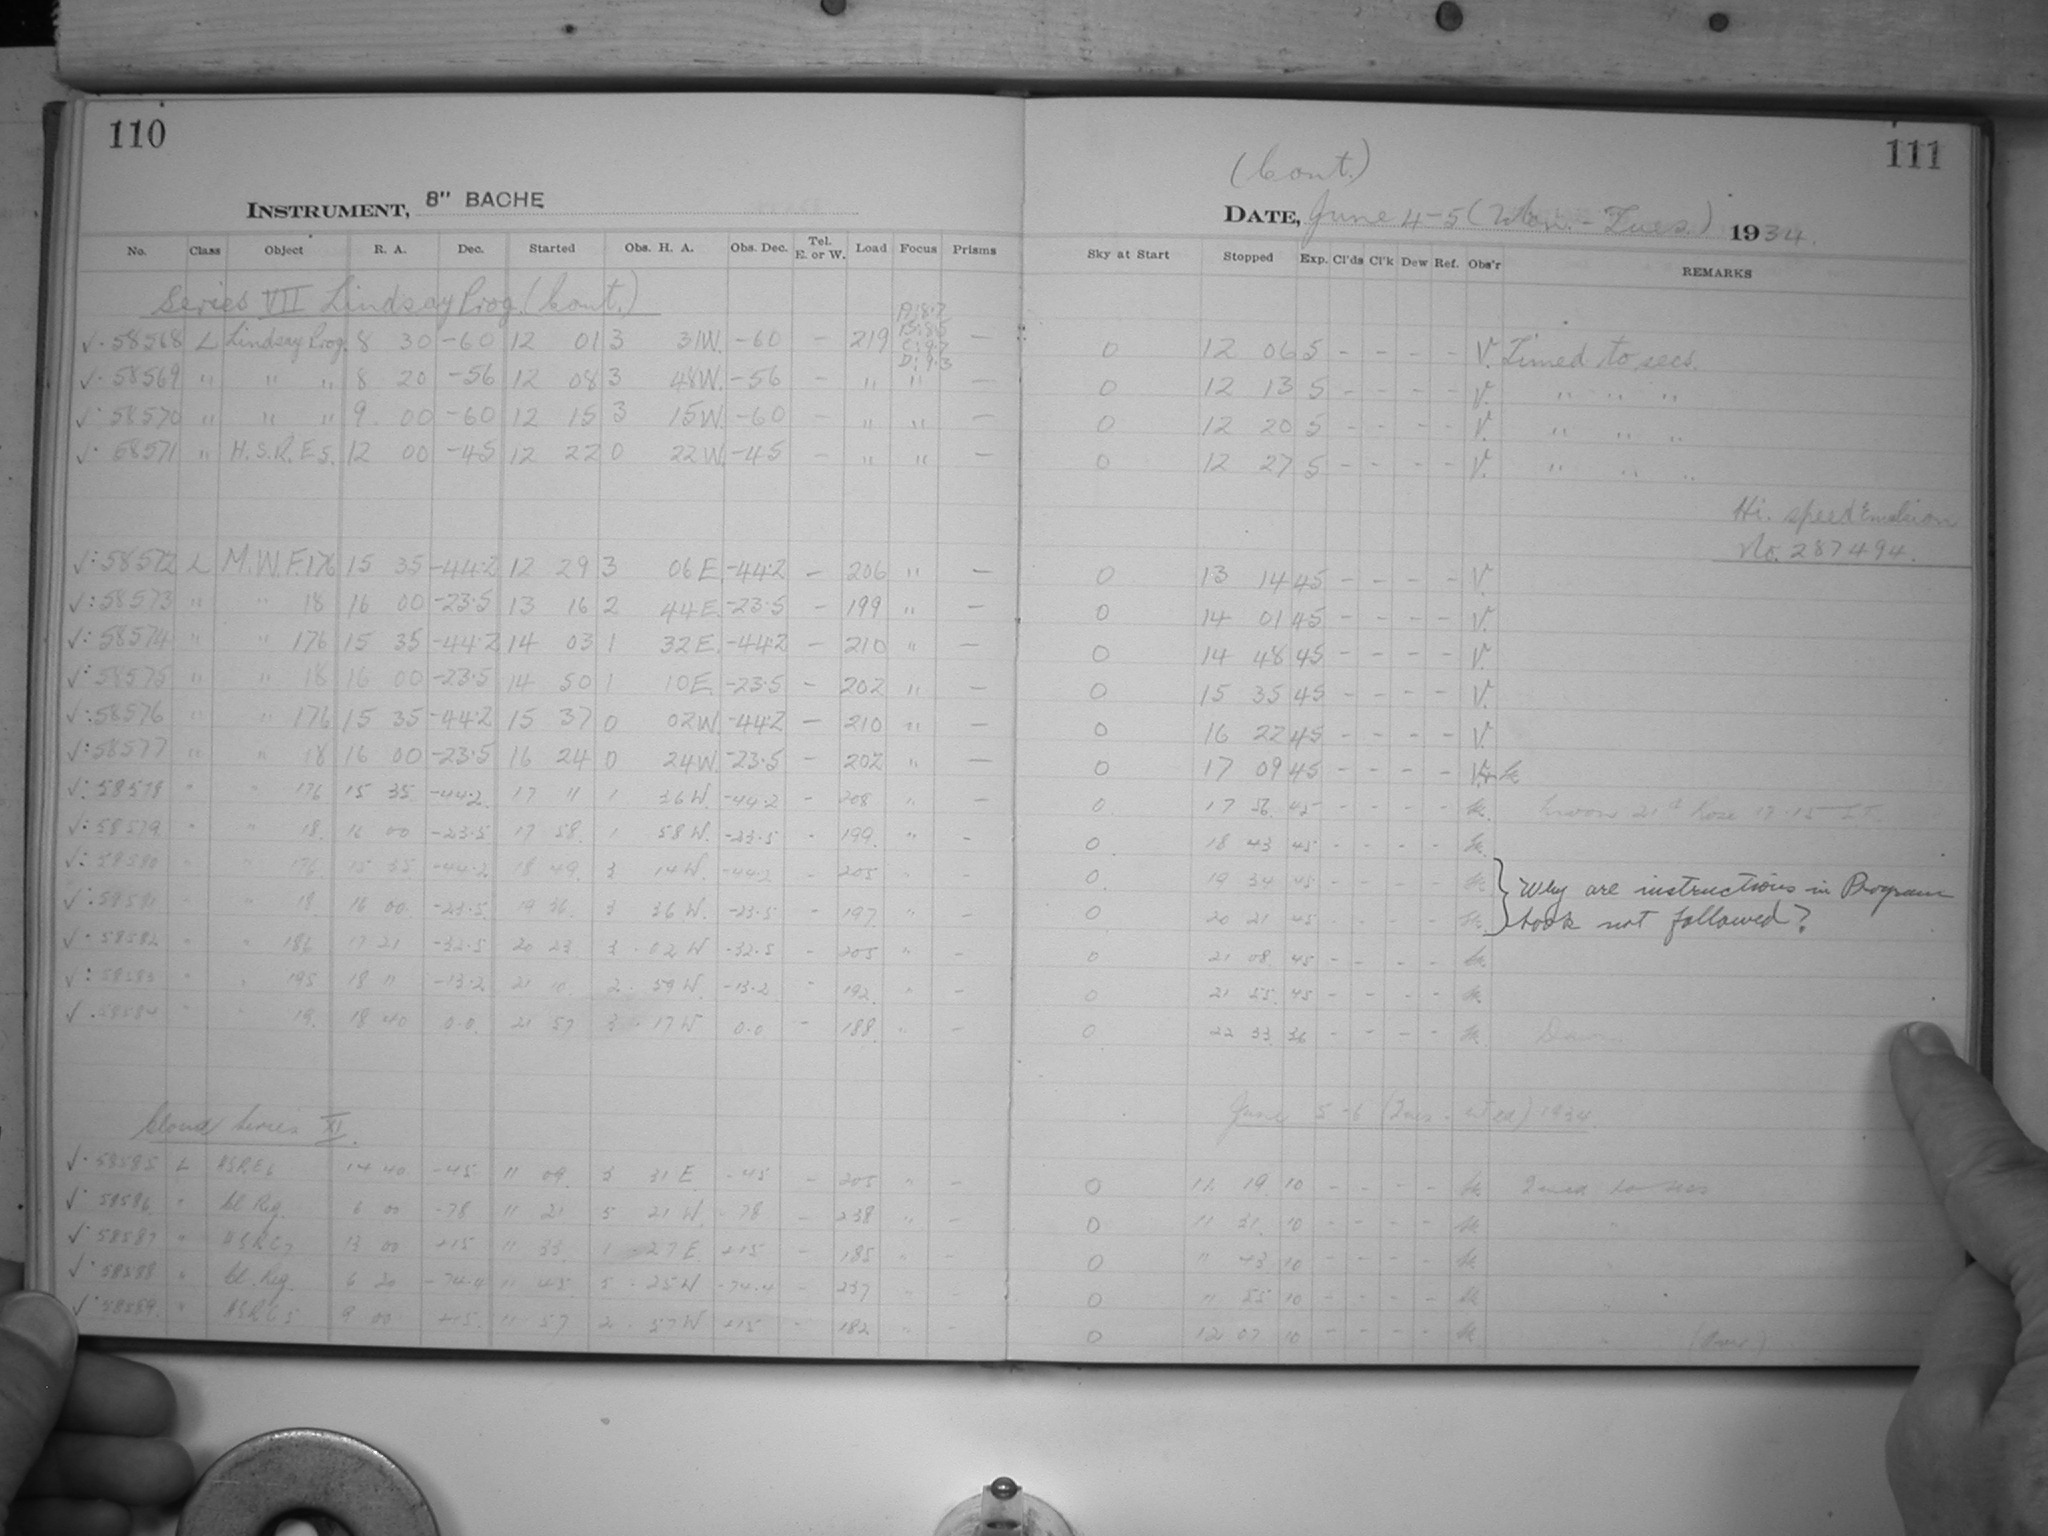 110
INSTRUMENT, 8" BACHE
No. Class Object R. A. Dec. Started Obs. H. A. Obs. Dec. Tel. E. or W. Load Focus Prisms
Series VII Lindsay Prog. (Cont.)
√· 58568 L Lindsay Prog. 8 30 -60 12 01 3 31W. -60 - 219 A:8.7 B:8.5 C:9.7 D:9.3 -
√· 58569 " " " 8 20 -56 12 08 3 48W. -56 - " " -
√· 58570 " " " 9 00 -60 12 15 3 15W. -60 - " " -
√· 58571 " H.S.R.E 5. 12 00 -45 12 22 0 22W. -45 - " " -
√: 58572 L M.W.F. 176 15 35 -44.2 12 29 3 06E. -44.2 - 206 " -
√: 58573 " " 18 16 00 -23.5 13 16 2 44E. -23.5 - 199 " -
√: 58574 " " 176 15 35 -44.2 14 03 1 32E. -44.2 - 210 " -
√: 58575 " " 18 16 00 -23.5 14 50 1 10E. -23.5 - 202 " -
√: 58576 " " 176 15 35 -44.2 15 37 0 02W. -44.2 - 210 " -
√: 58577 " " 18 16 00 -23.5 16 24 0 24W. -23.5 - 202 " -
√: 58578 " " 176 15 35 -44.2 17 11 1 36W. -44.2 - 208 " -
√: 58579 " " 18. 16 00 -23.5 17 58. 1 58W. -23.5 - 199. " -
√: 58580 " " 176. 15 35 -44.2 18 49. 3 14W. -44.2 - 205 " -
√: 58581 " " 18 16 00. -23.5 19 36. 3 36W. -23.5 - 197 " -
√· 58582 " " 186 17 21 -32.5 20 23 3 02W -32.5 - 205 " -
√: 58583 " " 195 18 11 -13.2 21 10. 2 59W. -13.2 - 192. " -
√· 58584 " " 19. 18 40 0.0. 21 57 3 17W 0.0 - 188. " -
Cloud Series XI.
√· 58585 L HSRE6 14 40 -45 11 09. 3 31E -45 - 205 " -
√· 58586 " Cl Reg. 6 00 -78 11 21 5 21W -78 - 238 " -
√· 58587 " HSRC7 13 00 +15 11 33. 1 27E +15 - 185 " -
√· 58588 " Cl. Reg. 6 20 -74.4 11 45 5 25W -74.4 - 237 " -
√· 58589. " HSRC5 9 00 +15. 11 57 2 57W +15 - 182 " -
111
(Cont.)
DATE, June 4-5 (Mon. - Tues.) 1934.
Sky at Start Stopped Exp. Cl'ds Cl'k Dew Ref. Obs'r REMARKS
0 12 06 5 - - - - V. Timed to secs.
0 12 13 5 - - - - V. " " "
0 12 20 5 - - - - V. " " "
0 12 27 5 - - - - V. " " "
Hi. speed Emulsion
No. 287494.
0 13 14 45 - - - - V.
0 14 01 45 - - - - V.
0 14 48 45 - - - - V.
0 15 35 45 - - - - V.
0 16 22 45 - - - - V.
0 17 09 45 - - - - V.
0 17 56. 45 - - - - Moon 21st Rose
0 18 43 45 - - - -
0. 19 34 45 - - - -
Why are instructions in Program
0 20 21 45 - - - -
book not followed?
0 21 08. 45 - - - -
0 21 55. 45 - - - -
0 22 33. 36 - - - - Dawn
June 5-6 (Tues. - Wed) 1934.
0 11. 19 10 - - - - Timed to secs
0 11 31. 10 - - - - "
0 " 43 10 - - - - "
0 " 55 10 - - - - "
0 12 07 10 - - - - " (Over)